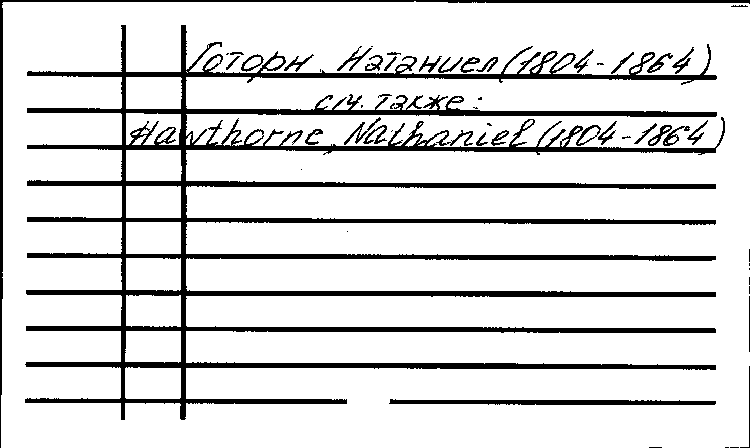 Готорн, Натаниел (1804-1864)
см. также:
Hawthorne, Nathaniel (1804-1864)